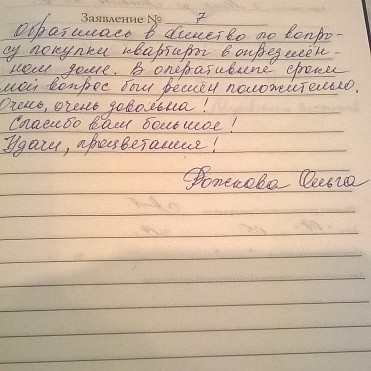 Заявление № 7
Обратилась в агенство по вопро-
су покупки квартиры в определён-
ном доме. В оперативные сроки
мой вопрос был решён положительно.
Очень, очень довольна!
Спасибо вам большое!
Удачи, процветания!
Рожкова Ольга